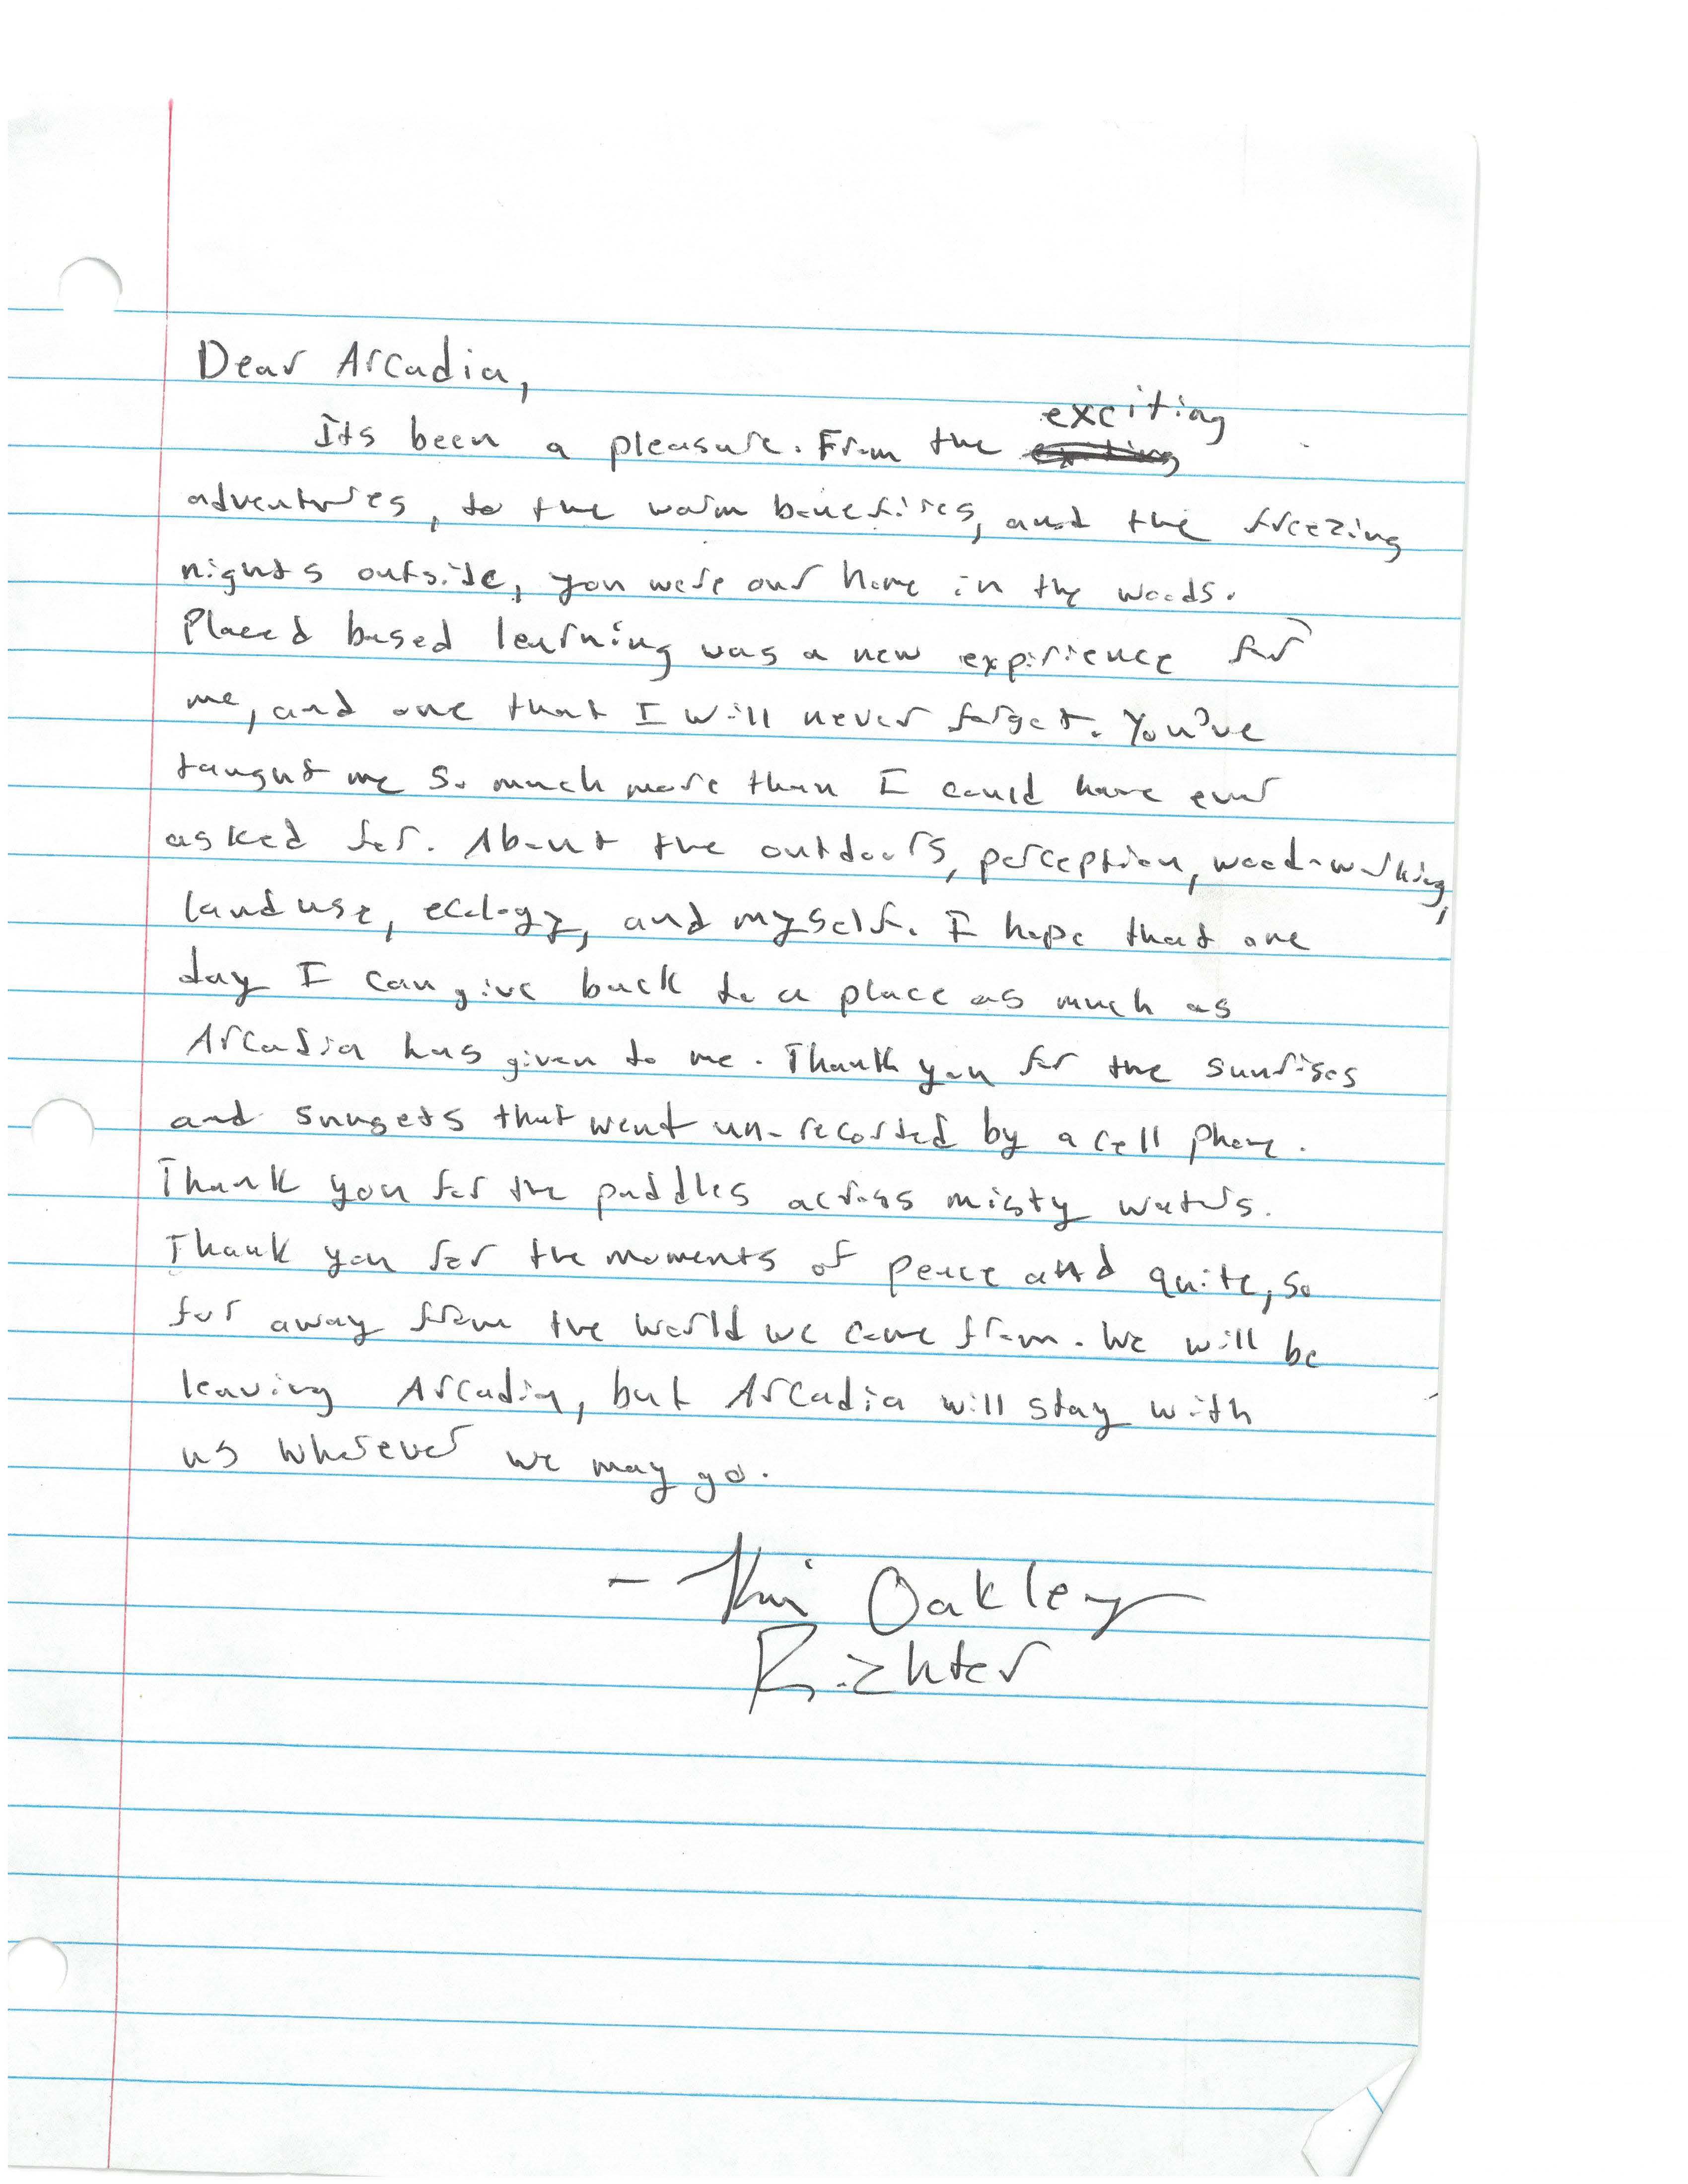 Dear Arcadia,
Its been a pleasure. From the exciting
adventures, to the warm bonefires, and the freezing
nights outside, you were our home in the woods.
Placed based learning was a new expirience for
me, and one that I will never forget. You've
taught me so much more than I could have ever
asked for. About the outdoors, perception, wood-working,
land use, ecology, and myself. I hope that one
day I can give back to a place as much as
Arcadia has given to me. Thank you for the sunrises
and sunsets that went un-recorded by a cell phone.
Thank you for the paddles across misty waters.
Thank you for the moments of peace and quite, so
far away from the world we came from. We will be
leaving Arcadia, but Arcadia will stay with
us wherever we may go.
- Oakley
Richter